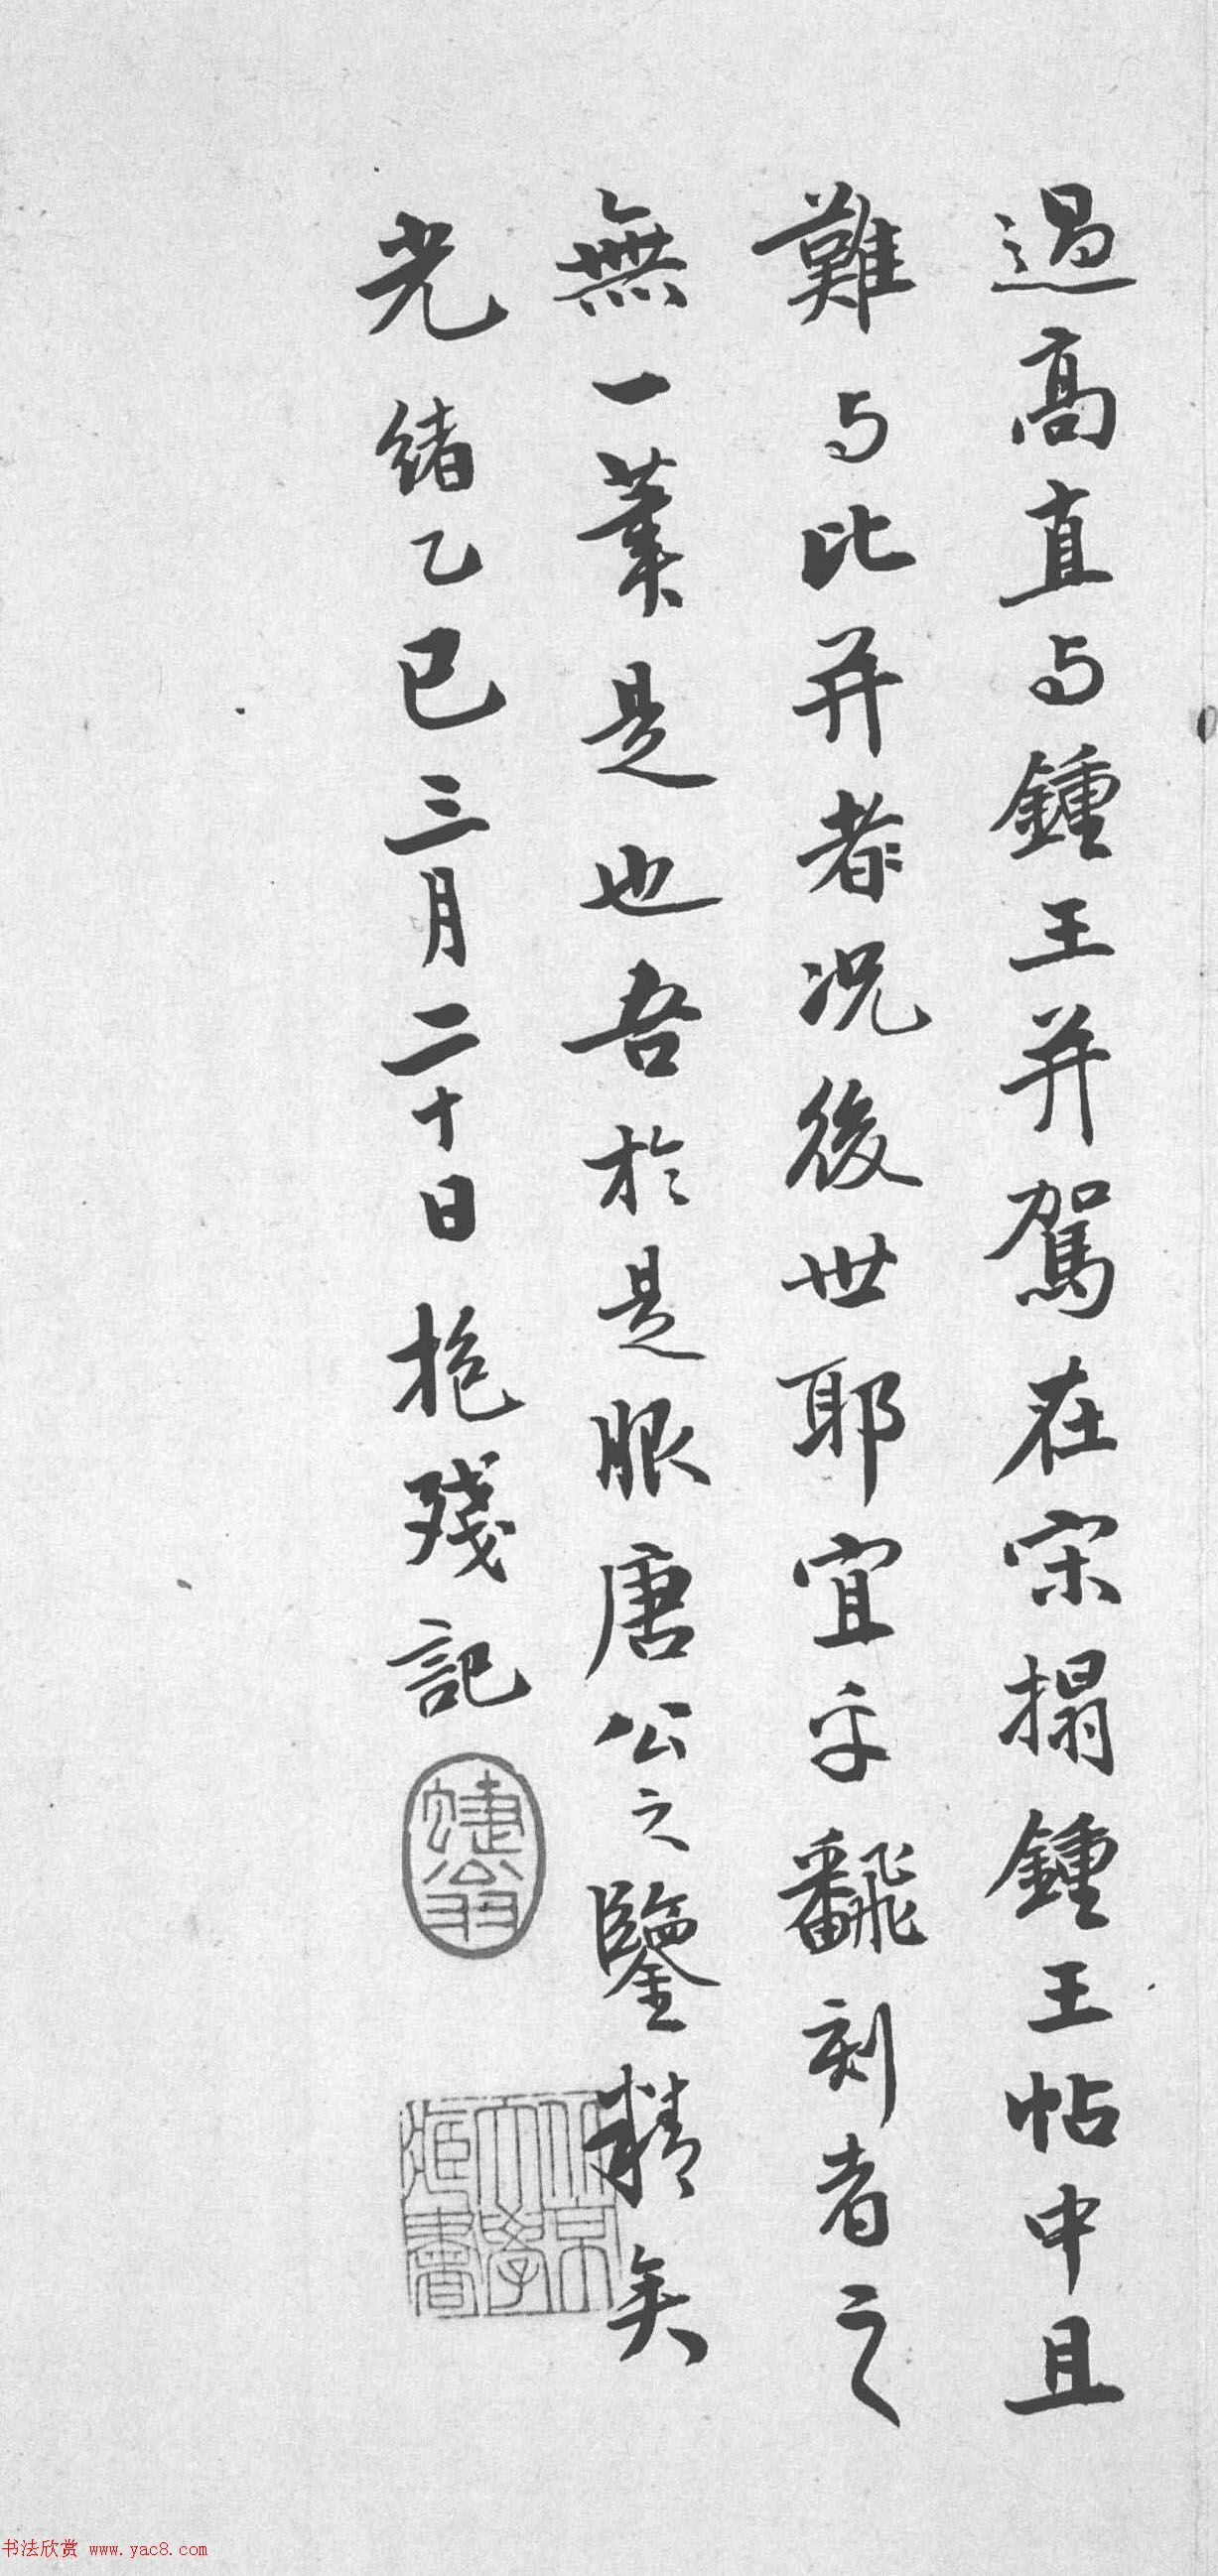 過高直与鍾王并駕在宋搨鍾王帖中且
難与比并者況後世耶宜乎飜刻者之
無一業是也吾於是服唐公之鑒精矣
光緒乙巳三月二十日抱殘記
北京大學藏書
书法欣赏 www.yac8.com